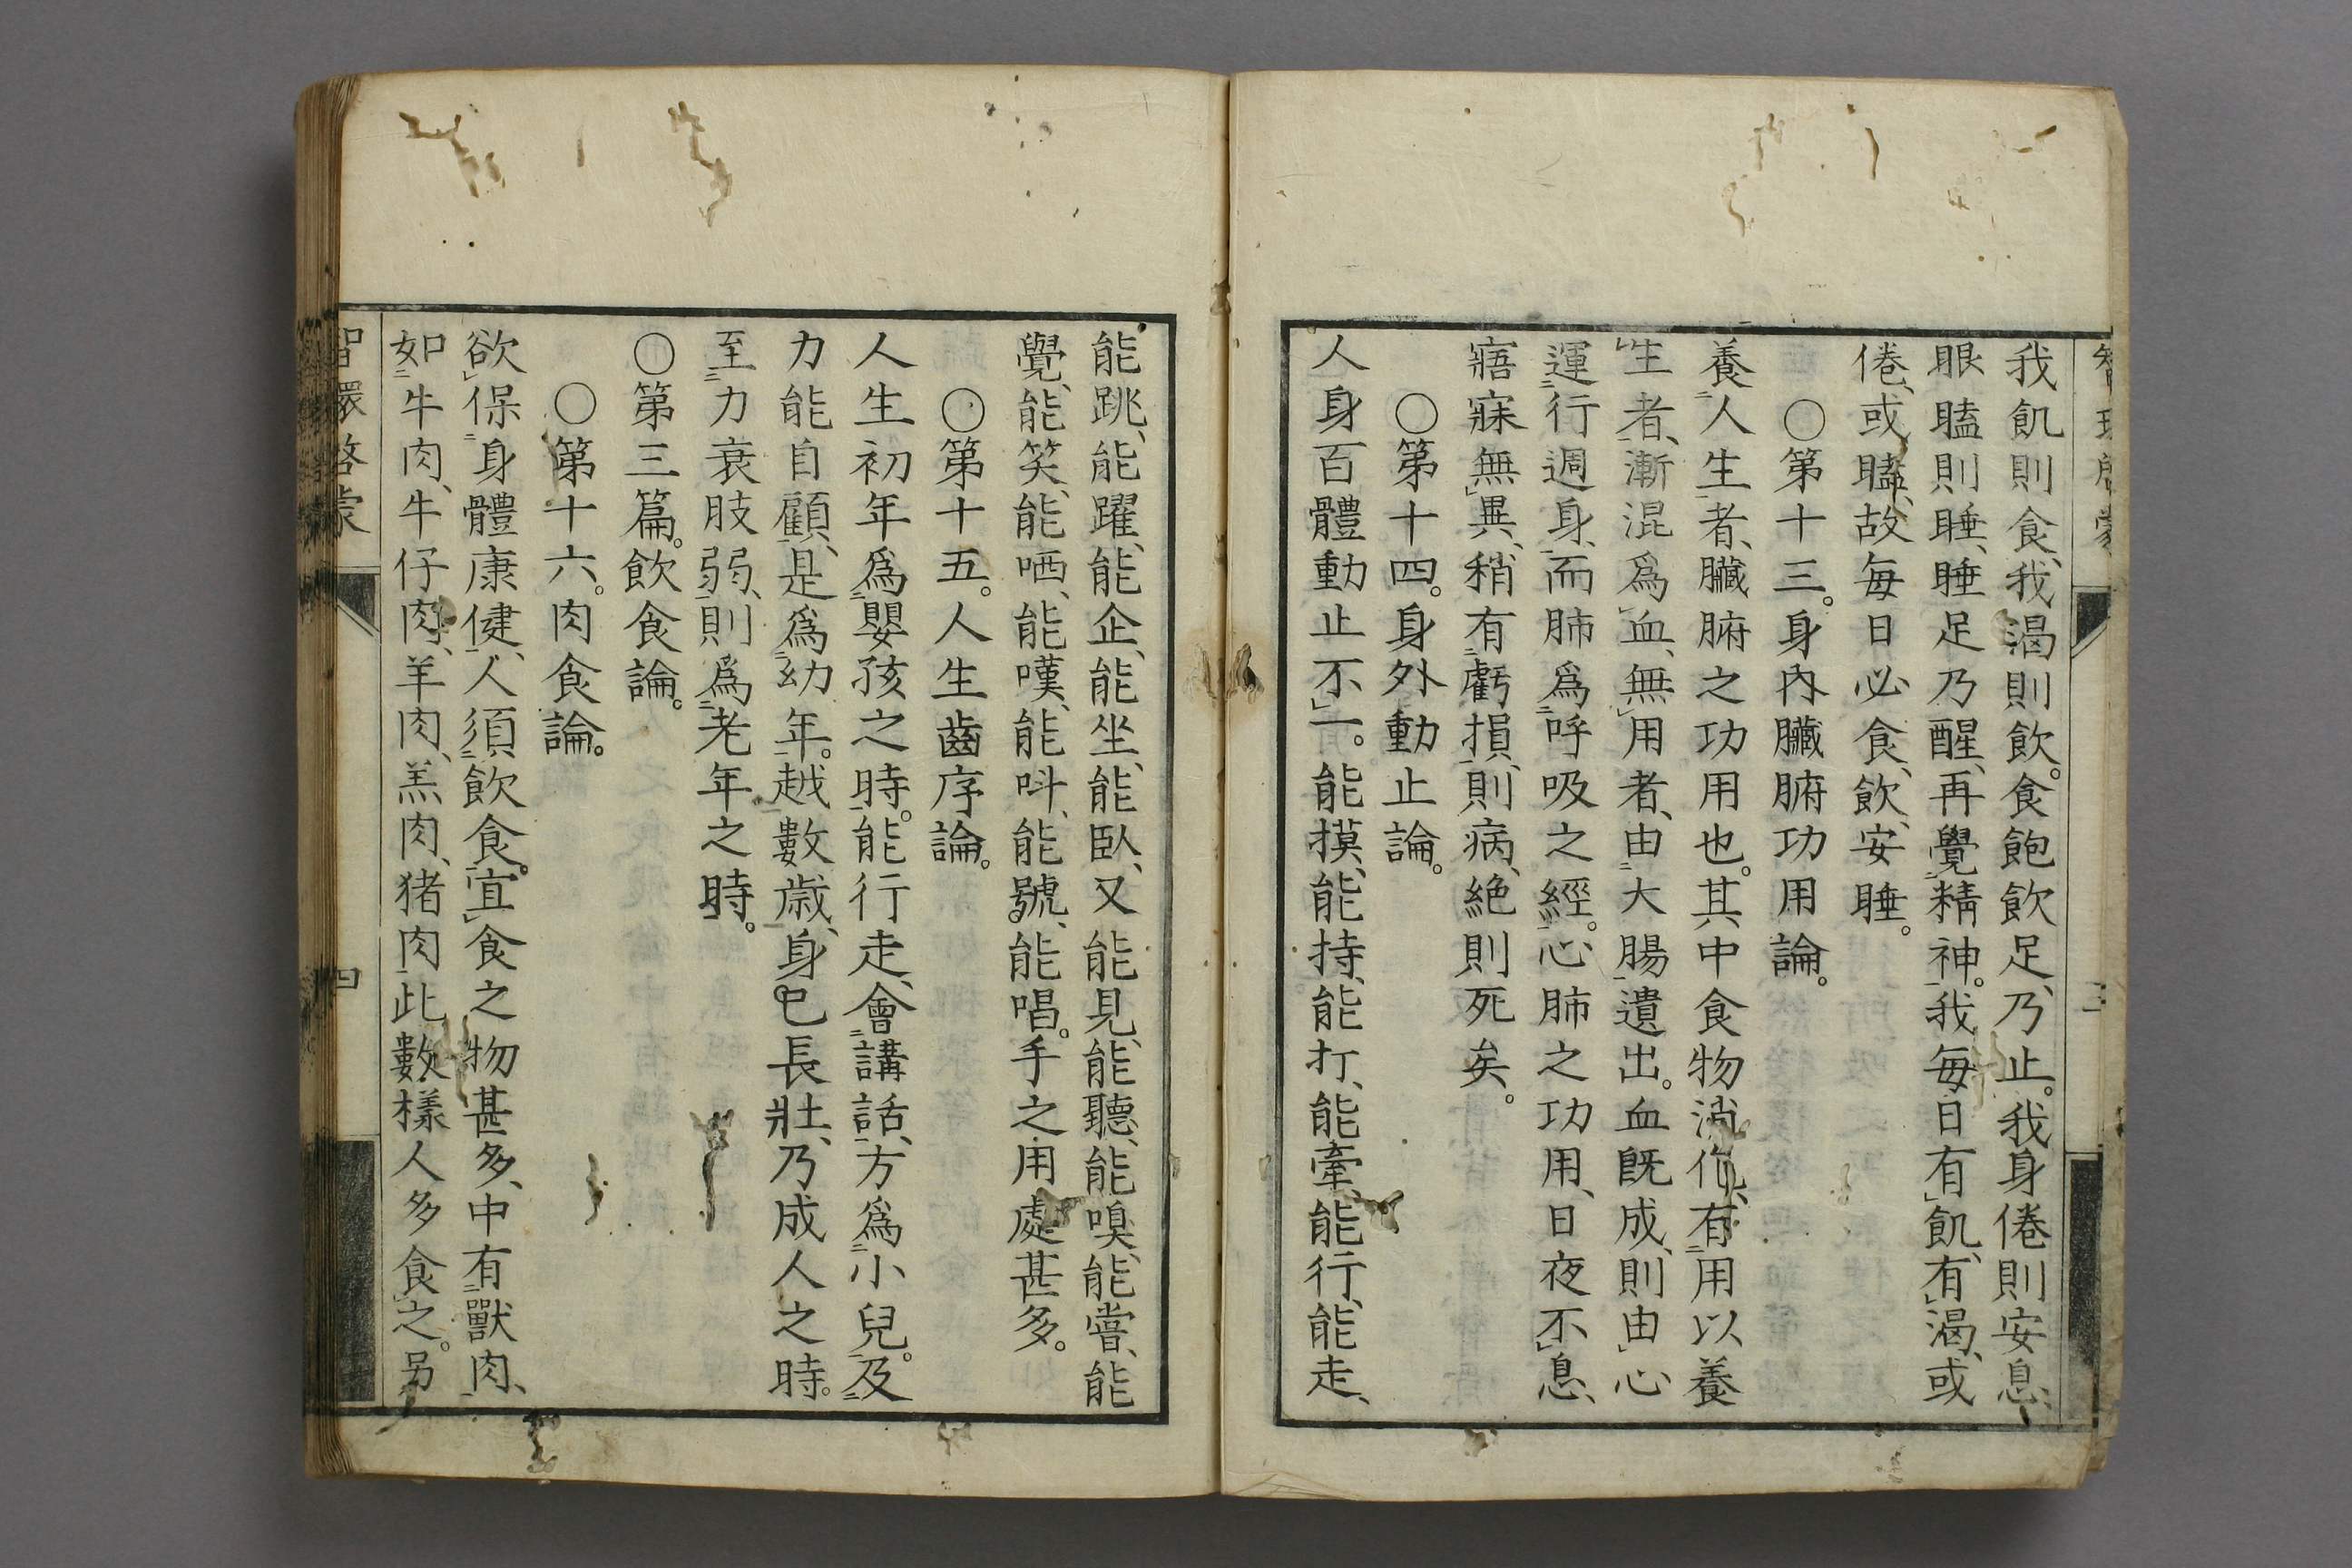 我飢則食、我渴則飲。食飽飲足、乃止。我身倦則安息、
眼瞌則睡、睡足乃醒、再覺精神。我每日有飢、有渴、或
倦、或瞌、故每日必食、飲、安睡。
〇第十三。身內臟腑功用論。
養人生者、臟腑之功用也。其中食物消化、有用以養
生者、漸混爲血、無用者、由大腸遺出。血既成、則由心
運行週身、而肺爲呼吸之經。心肺之功用、日夜不息、
寤寐無異、稍有虧損、則病、絶則死矣。
〇第十四。身外動止論。
人身百體動止不一。能摸、能持、能打、能牽、能行、能走、
能跳、能躍、能企、能坐、能臥、又能見、能聽、能嗅、能嘗、能
覺、能笑、能哂、能嘆、能呌、能號、能唱。手之用處甚多。
〇第十五。人生齒序論。
人生初年爲嬰孩之時。能行走、會講話、方爲小兒。及
力能自顧、是爲幼年。越數歲、身已長壯、乃成人之時。
至力衰肢弱、則爲老年之時。
〇第三篇。飲食論。
〇第十六。肉食論。
欲保身體康健、人須飲食。宜食之物甚多、中有獸肉、
如牛肉、牛仔肉、羊肉、羔肉、猪肉此數樣人多食之。另
智環啓蒙
四